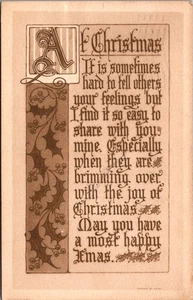 At Christmas
It is sometimes
hard to tell others
your feelings but
I find it so easy to
share with you
mine. Especially
when they are
brimming over
with the joy of
Christmas
May you have
a most happy
Xmas.